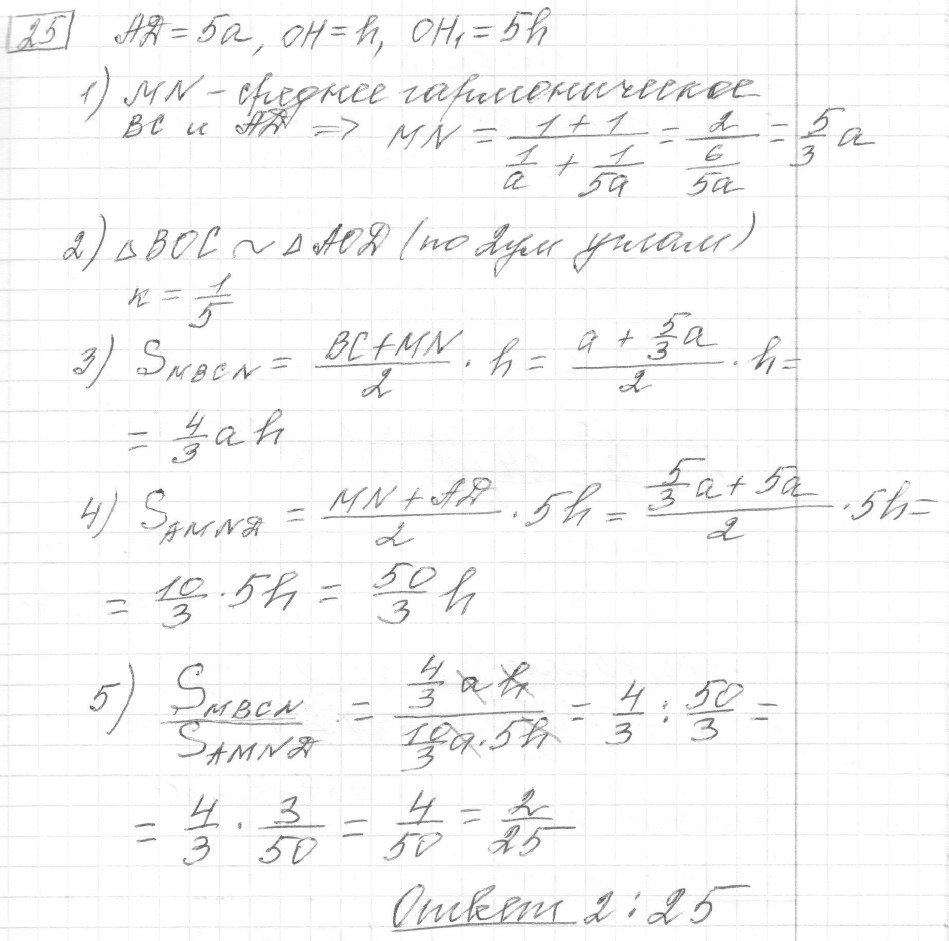 25 АД = 5a, OH = h, OH₁ = 5h
1) MN – среднее гармоническое
BC и АД => MN = (1 + 1)/(1/a + 1/5a) = 2/(6/5a) = 5/3 a
2) △BOC ~ △AOД (по 2ум углам)
к = 1/5
3) S_MBCN = (BC + MN)/2 · h = (a + 5/3 a)/2 · h =
= 4/3 a h
4) S_AMNД = (MN + АД)/2 · 5h = (5/3 a + 5a)/2 · 5h =
= 10/3 · 5h = 50/3 h
5) S_MBCN/S_AMNД = (4/3 a h)/(10/3 a · 5h) = 4/3 : 50/3 =
= 4/3 · 3/50 = 4/50 = 2/25
Ответ 2 : 25